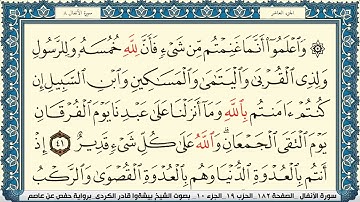 الجزء العاشر
سورة الأنفال ٨
۞ وَٱعْلَمُوٓا۟ أَنَّمَا غَنِمْتُم مِّن شَىْءٍ فَأَنَّ لِلَّهِ خُمُسَهُۥ وَلِلرَّسُولِ
وَلِذِى ٱلْقُرْبَىٰ وَٱلْيَتَٰمَىٰ وَٱلْمَسَٰكِينِ وَٱبْنِ ٱلسَّبِيلِ إِن
كُنتُمْ ءَامَنتُم بِٱللَّهِ وَمَآ أَنزَلْنَا عَلَىٰ عَبْدِنَا يَوْمَ ٱلْفُرْقَانِ
يَوْمَ ٱلْتَقَى ٱلْجَمْعَانِ ۗ وَٱللَّهُ عَلَىٰ كُلِّ شَىْءٍ قَدِيرٌ ٤١ إِذْ
أَنتُم بِٱلْعُدْوَةِ ٱلدُّنْيَا وَهُم بِٱلْعُدْوَةِ ٱلْقُصْوَىٰ وَٱلرَّكْبُ
سورة الأنفال _الصفحة ١٨٢_ الحزب ١٩_ الجزء ١٠_ بصوت الشيخ بيشةوا قادر الكردي_ برواية حفص عن عاصم